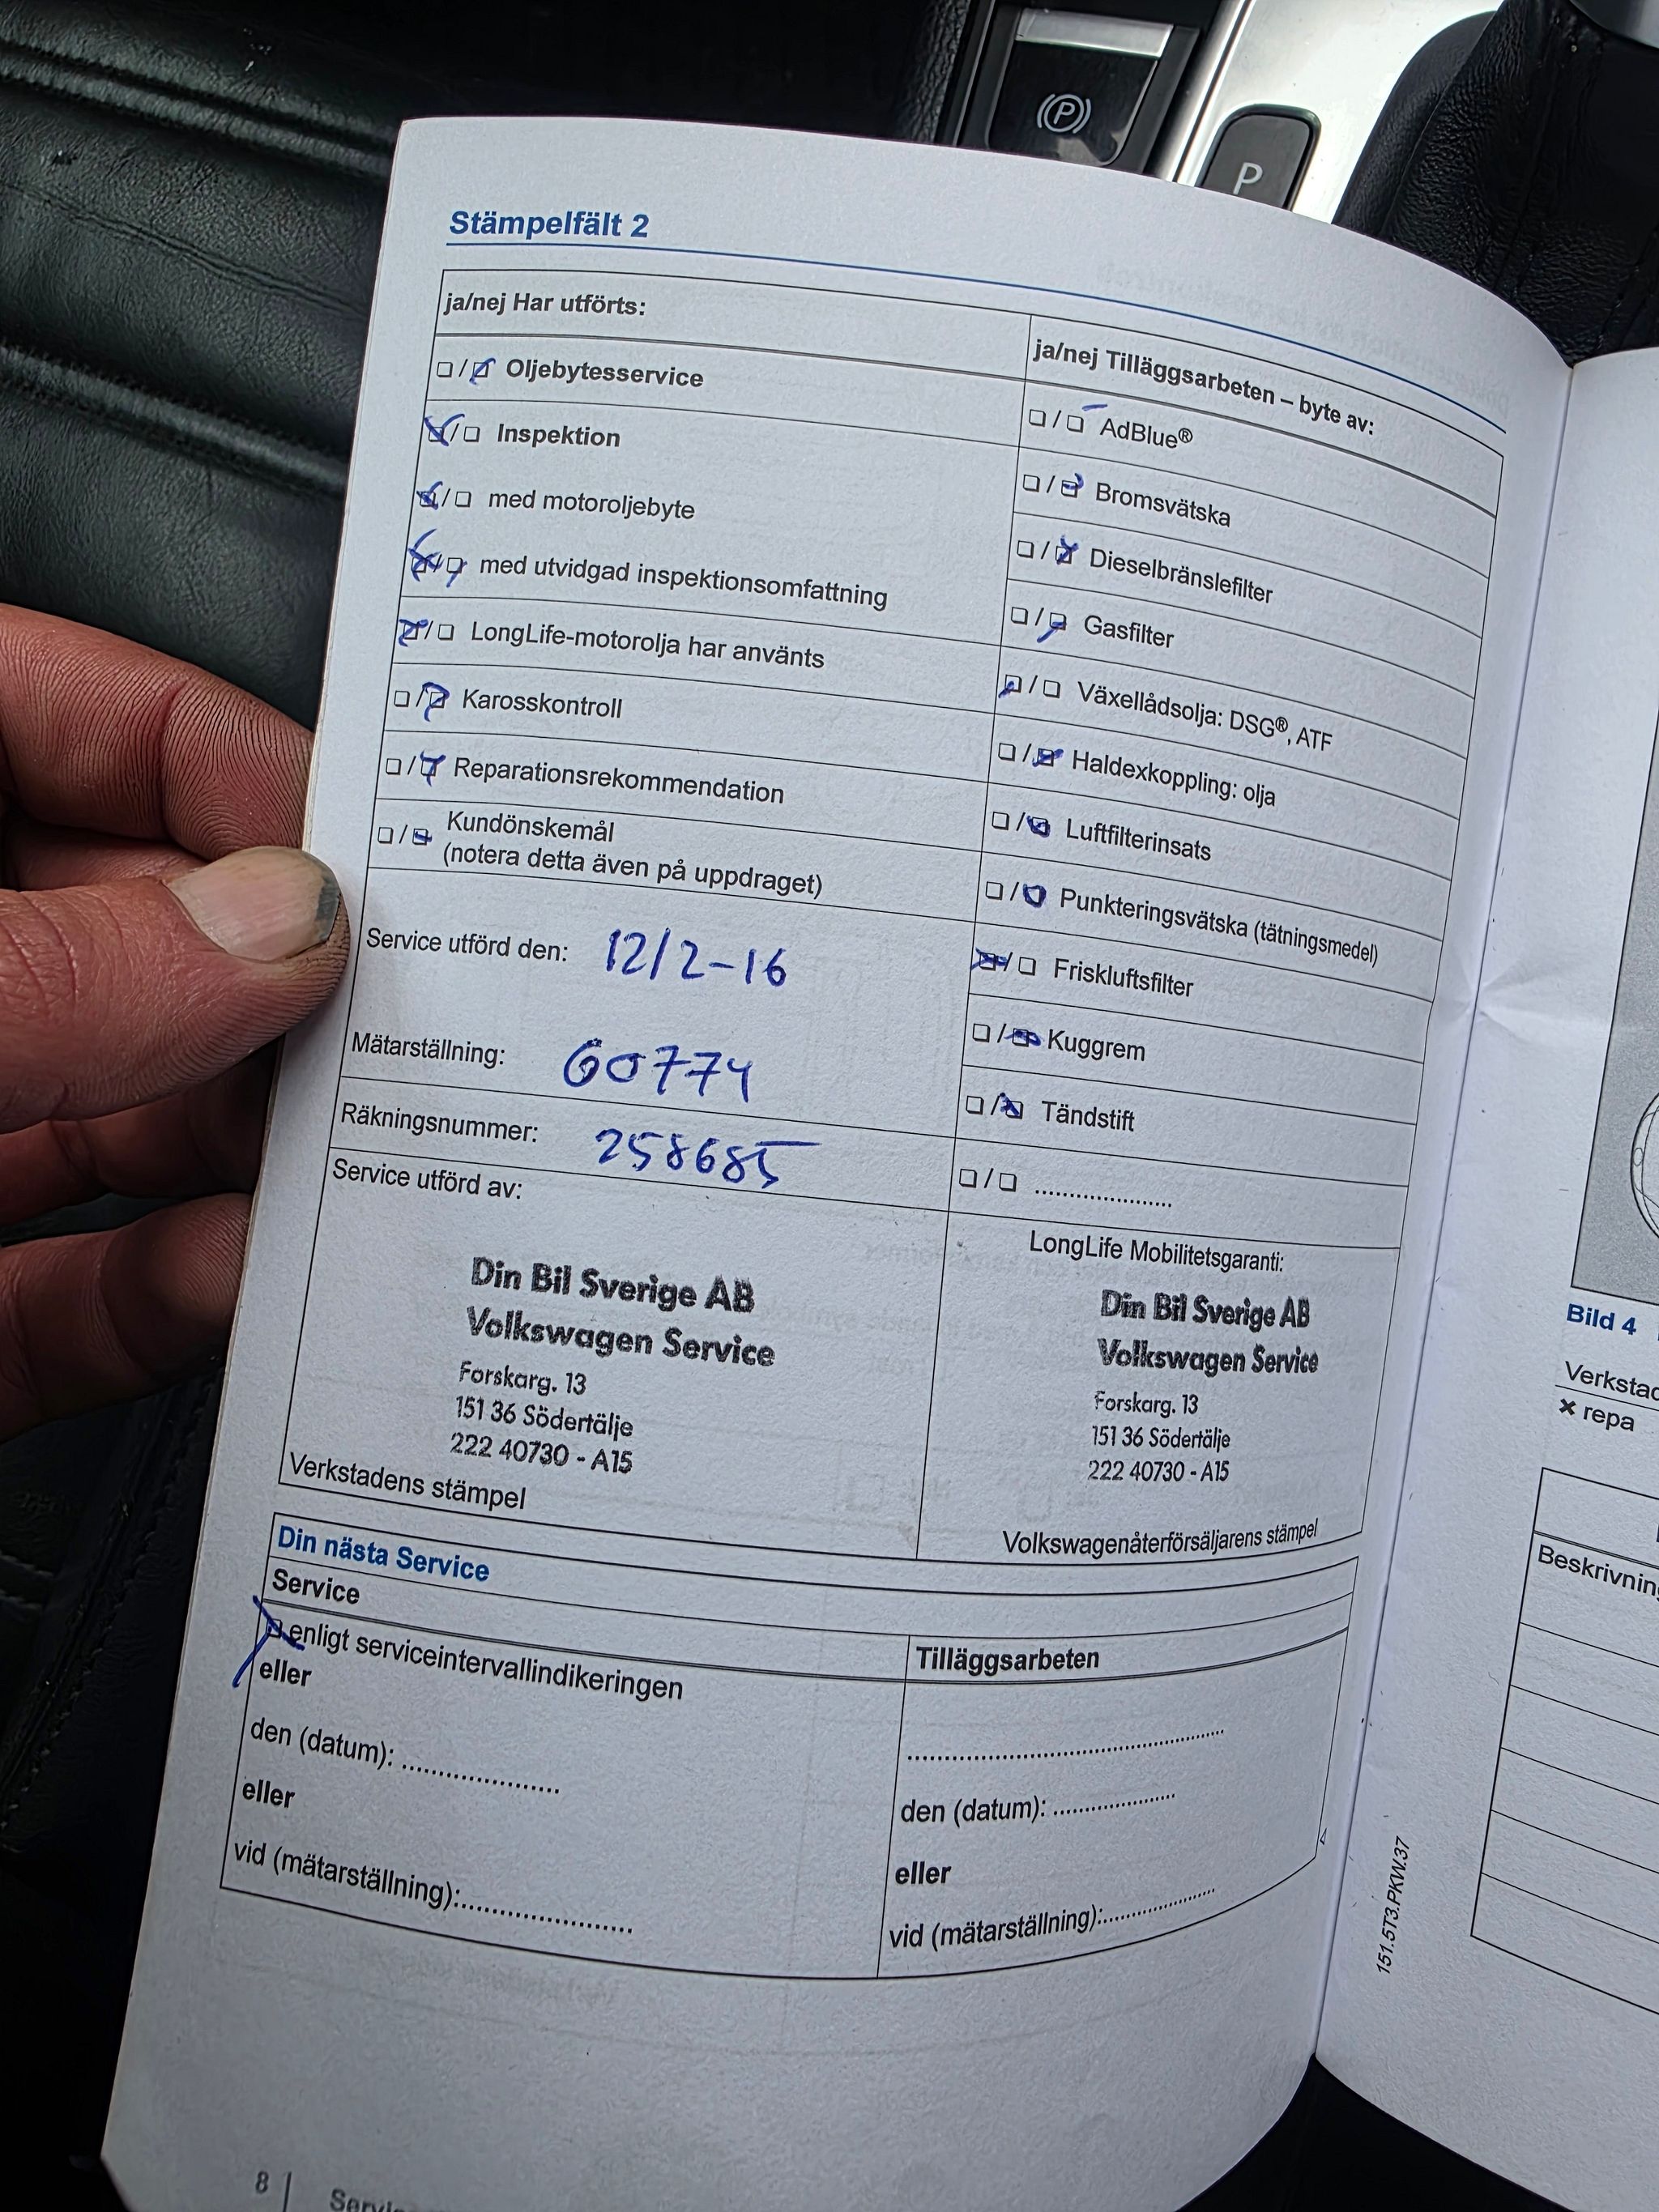 P
P
Stämpelfält 2
ja/nej Har utförts:
☐/☑ Oljebytesservice
☑/☐ Inspektion
☑/☐ med motoroljebyte
☑/☑ med utvidgad inspektionsomfattning
☑/☐ LongLife-motorolja har använts
☐/☑ Karosskontroll
☐/☑ Reparationsrekommendation
☐/☑ Kundönskemål
(notera detta även på uppdraget)
Service utförd den: 12/2-16
Mätarställning: 60774
Räkningsnummer: 258685
Service utförd av:
Din Bil Sverige AB
Volkswagen Service
Forskarg. 13
151 36 Södertälje
222 40730 - A15
Verkstadens stämpel
ja/nej Tilläggsarbeten – byte av:
☐/☐ AdBlue®
☐/☑ Bromsvätska
☐/☑ Dieselbränslefilter
☐/☑ Gasfilter
☑/☐ Växellådsolja: DSG®, ATF
☐/☑ Haldexkoppling: olja
☐/☑ Luftfilterinsats
☐/☑ Punkteringsvätska (tätningsmedel)
☑/☐ Friskluftsfilter
☐/☑ Kuggrem
☐/☑ Tändstift
☐/☐ .....................
LongLife Mobilitetsgaranti:
Din Bil Sverige AB
Volkswagen Service
Forskarg. 13
151 36 Södertälje
222 40730 - A15
Volkswagenåterförsäljarens stämpel
Din nästa Service
Service
☑ enligt serviceintervallindikeringen
eller
den (datum): .....................
eller
vid (mätarställning):.....................
Tilläggsarbeten
.....................
den (datum): .....................
eller
vid (mätarställning):.....................
151.5T3.PKW.37
8
Bild 4
repa